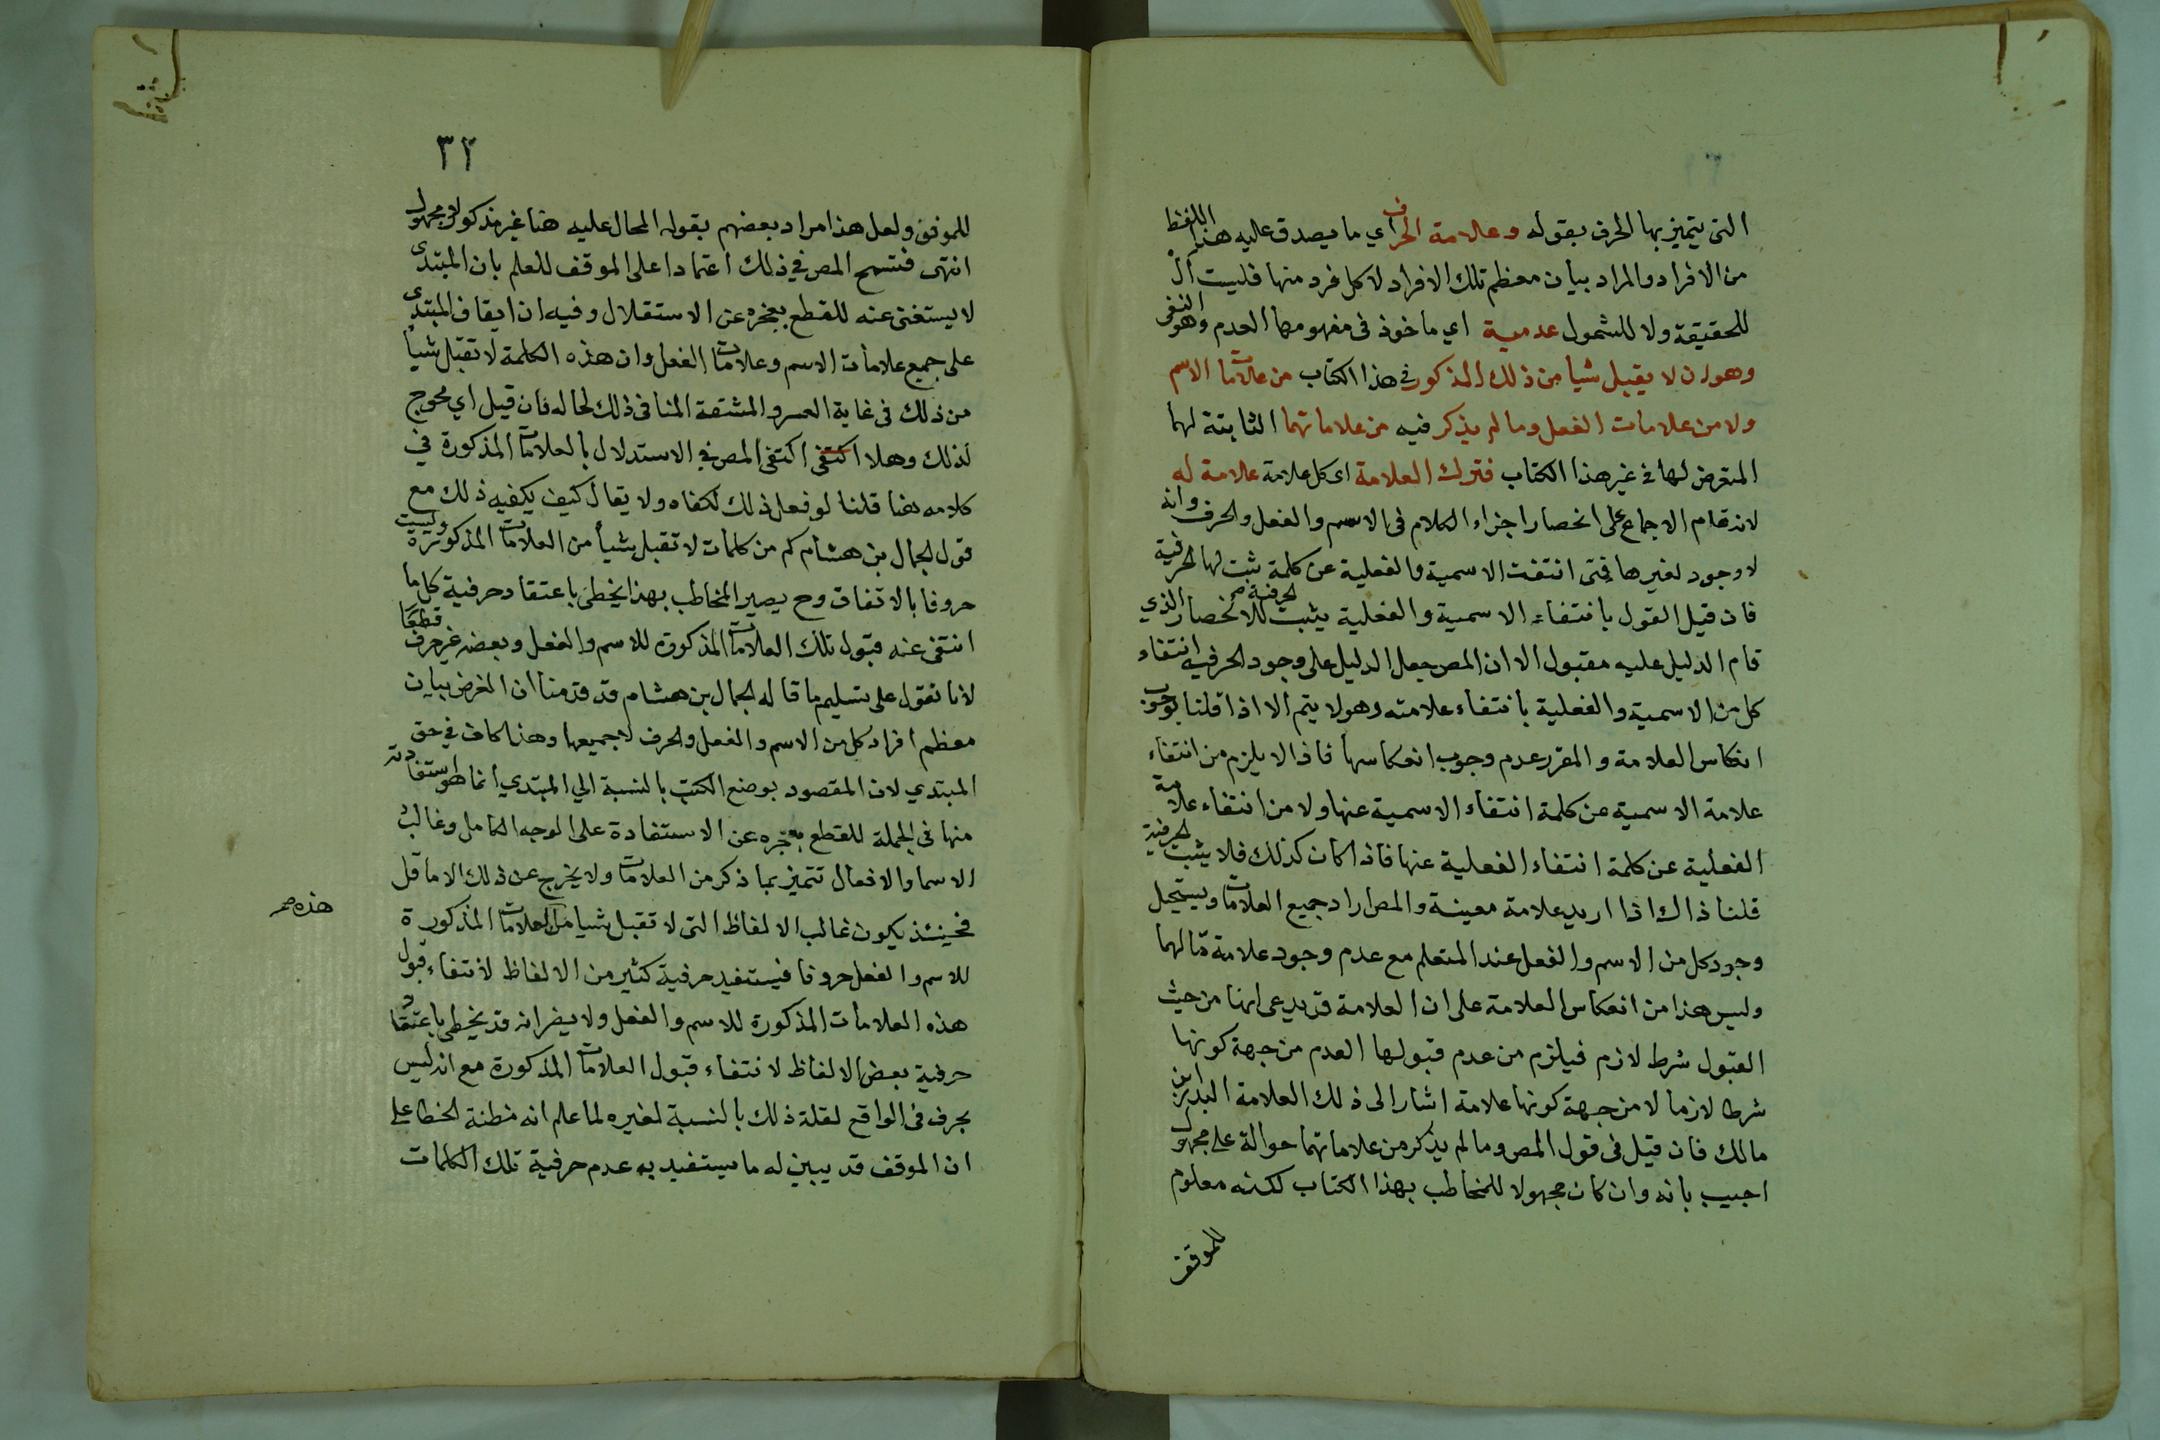 التى يتميز بها الحرف بقوله وعلامة الحرف اي ما يصدق عليه هذا اللفظ
من الافراد والمراد بيان معظم تلك الافراد لا كل فرد منها فليست ال
للحقيقة ولا للشمول عدمية اي ماخوذ فى مفهومها العدم وهو النفى
وهو ان لا يقبل شيا من ذلك المذكور في هذا الكتاب من علامات الاسم
ولا من علامات الفعل وما لم يذكر فيه من علاماتهما الثابتة لهما
المتعرض لها فى غير هذا الكتاب فترك العلامة اى كل علامة علامة له
لانه قام الاجماع على انحصار اجزاء الكلام فى الاسم والفعل والحرف وانه
لا وجود لغيرها فمتى انتفت الاسمية والفعلية عن كلمة ثبت لها الحرفية
فان قيل القول بانتفاء الاسمية والفعلية يثبت الحرفية صح للانحصار الذي
قام الدليل عليه مقبول الا ان المص جعل الدليل على وجود الحرفية انتفاء
كل من الاسمية والفعلية بانتفاء علامته وهو لا يتم الا اذا قلنا بوجوب
انعكاس العلامة والمقرر عدم وجوب انعكاسها فاذا لا يلزم من انتفاء
علامة الاسمية عن كلمة انتفاء الاسمية عنها ولا من انتفاء علامة
الفعلية عن كلمة انتفاء الفعلية عنها فاذا كان كذلك فلا يثبت الحرفية
قلنا ذاك اذا اريد علامة معينة والمص اراد جميع العلامات ويستحيل
وجود كل من الاسم والفعل عند المتعلم مع عدم وجود علامة ما لهما
وليس هذا من انعكاس العلامة على ان العلامة قد يدعى انها من حيث
القبول شرط لازم فيلزم من عدم قبولها العدم من جهة كونها
شرطا لازما لا من جهة كونها علامة اشار الى ذلك العلامة البدر بن
مالك فان قيل فى قول المص وما لم يذكر من علاماتهما حوالة على مجهول
اجيب بانه وان كان مجهولا للمخاطب بهذا الكتاب لكنه معلوم
للموقف
٣٢
للموقف ولعل هذا مراد بعضهم بقوله المحال عليه هنا غير مذكور لا مجهول
انتهى فتسمح المص في ذلك اعتمادا على الموقف للعلم بان المبتدى
لا يستغنى عنه للقطع بعجزه عن الاستقلال وفيه ان ايقاف المبتدى
على جميع علامات الاسم وعلامات الفعل وان هذه الكلمة لا تقبل شيأ
من ذلك فى غاية العسر والمشقة المنافى ذلك لحاله فان قيل اي محوج
لذلك وهلا اكتفى اكتفى المص في الاستدلال بالعلامات المذكورة في
كلامه هنا قلنا لو فعل ذلك لكفاه ولا يقال كيف يكفيه ذلك مع
قول الجمال بن هشام كم من كلمات لا تقبل شيأ من العلامات المذكورة وليست
حروفا بالاتفاق وح يصير المخاطب بهذا يخطئ باعتقاد حرفية كل ما
انتفى عنه قبول تلك العلامات المذكورة للاسم والفعل وبعضه غير حرف قطعا
لانا نقول على تسليم ما قاله الجمال بن هشام قد قدمنا ان الغرض بيان
معظم افراد كل من الاسم والفعل والحرف لا جميعها وهذا كاف في حق
المبتدي لان المقصود بوضع الكتب بالنسبة الي المبتدي انما هو استفادته
منها فى الجملة للقطع بعجزه عن الاستفادة على الوجه الكامل وغالب
الاسما والافعال تتميز بما ذكر من العلامات ولا يخرج عن ذلك الا ما قل
فحينئذ يكون غالب الالفاظ التى لا تقبل شيا من العلامات المذكورة
هذه صح
للاسم والفعل حروفا فيستفيد حرفية كثير من الالفاظ لانتفاء قبول
هذه العلامات المذكورة للاسم والفعل ولا يضر انه قد يخطى باعتقاد
حرفية بعض الالفاظ لانتفاء قبول العلامات المذكورة مع انه ليس
بحرف فى الواقع لقلة ذلك بالنسبة لغيره لما علم انه مظنة الخطا على
ان الموقف قد يبين له ما يستفيد به عدم حرفية تلك الكلمات